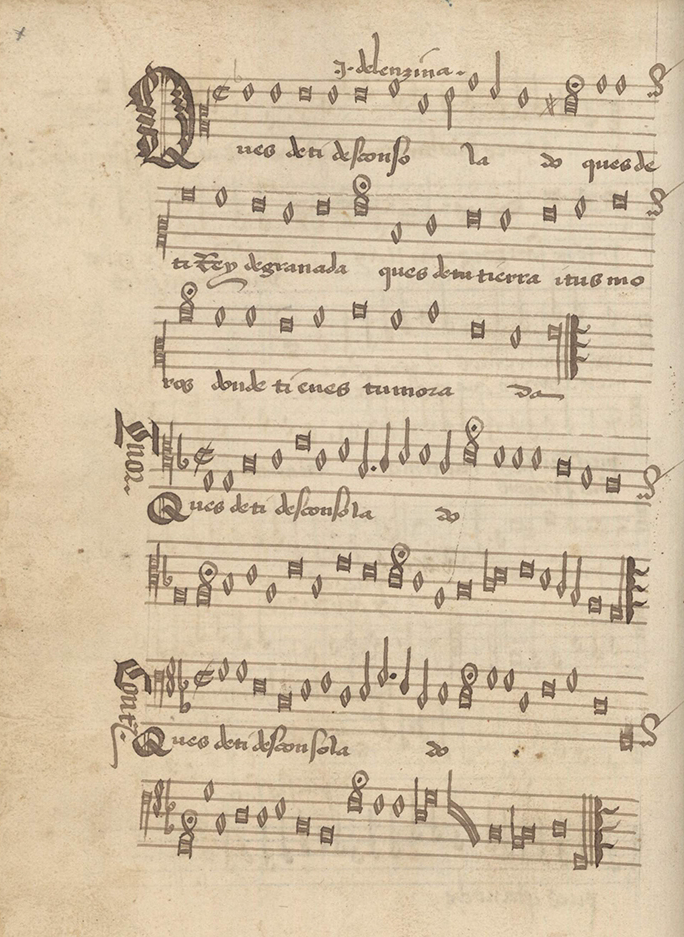 J. delenzina.
Ques deti desconso la do ques de
ti Rey degranada ques detu tierra itus mo
ros donde tienes tumora da
Tnor.
Ques deti desconsola do
Contra
Ques deti desconsola do